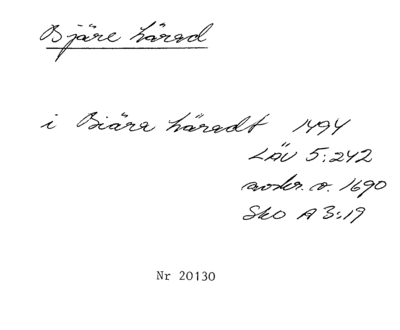 Bjäre härad
i Biäre häradt 1494
LÄU 5:242
avskr. o. 1690
Sko A 3:19
Nr 20130